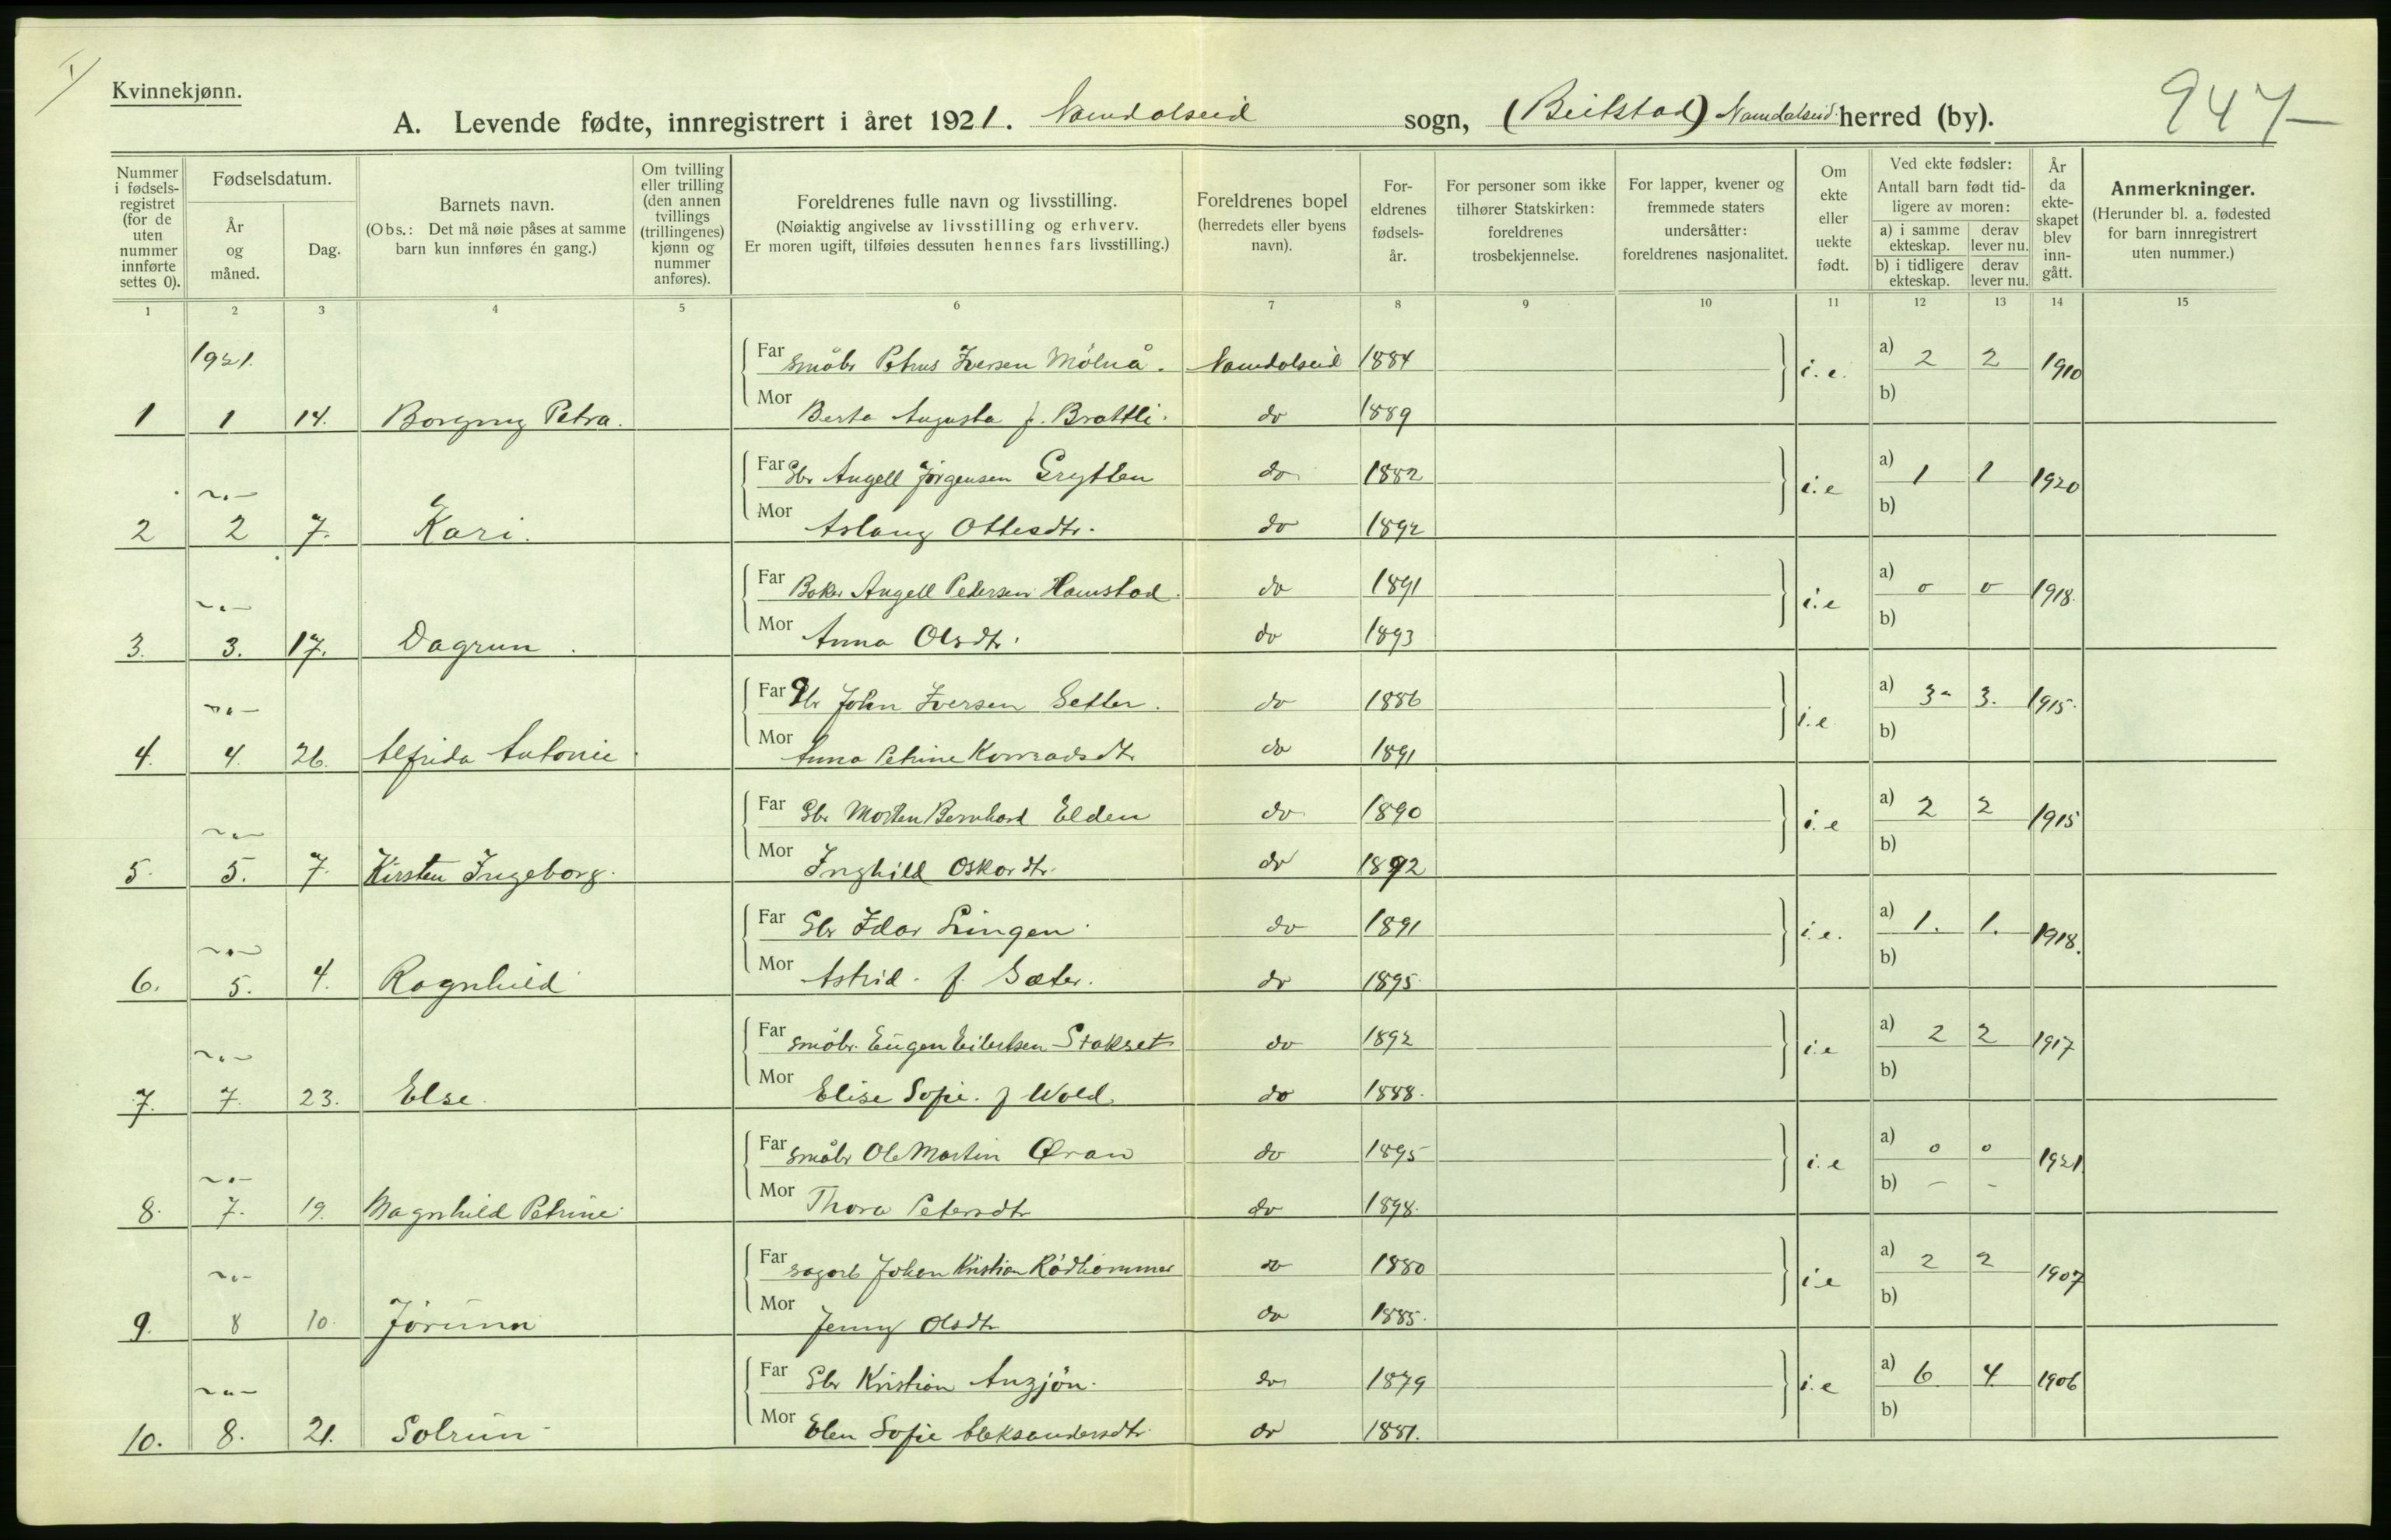 I
Kvinnekjønn.
A. Levende fødte, innregistrert i året 1921. Namdalseid sogn, (Beitstad) Namdalseid herred (by).
947-
Nummer i fødselsregistret (for de uten nummer innførte settes 0).
Fødselsdatum.
År og måned.
Dag.
Barnets navn.
(Obs.: Det må nøie påses at samme barn kun innføres én gang.)
Om tvilling eller trilling (den annen tvillings (trillingenes) kjønn og nummer anføres).
Foreldrenes fulle navn og livsstilling.
(Nøiaktig angivelse av livsstilling og erhverv.
Er moren ugift, tilføies dessuten hennes fars livsstilling.)
Foreldrenes bopel
(herredets eller byens navn).
Foreldrenes fødselsår.
For personer som ikke tilhører Statskirken: foreldrenes trosbekjennelse.
For lapper, kvener og fremmede staters undersåtter: foreldrenes nasjonalitet.
Om ekte eller uekte født.
Ved ekte fødsler:
Antall barn født tidligere av moren:
a) i samme ekteskap. derav lever nu.
b) i tidligere ekteskap. derav lever nu.
År da ekteskapet blev inngått.
Anmerkninger.
(Herunder bl. a. fødested for barn innregistrert uten nummer.)
1 2 3 4 5 6 7 8 9 10 11 12 13 14 15
1921.
Far Småbr Petrus Iversen Mölnå. Namdalseid 1884 i.e. a) 2 2 1910
1 1 14. Borgny Petra. Mor Berta Augusta f. Brattli. do 1889 b)
Far Gbr Angell Jörgensen Grytten do 1882 i.e a) 1 1 1920
2 2 7. Kari. Mor Aslaug Ottesdtr. do 1892 b)
Far Baker Angell Pedersen Hamstad. do 1891 i.e a) 0 0 1918.
3. 3. 17. Dagrun. Mor Anna Olsdtr. do 1893 b)
Far Gbr John Iversen Setter. do 1886 i.e a) 3 3. 1915.
4. 4. 26. Alfrida Antonie. Mor Anna Petrine Konradsdtr do 1891 b)
Far Gbr Morten Bernhard Elden do 1890 i.e a) 2 2 1915
5. 5. 7. Kirsten Ingeborg. Mor Inghild Oskardtr. do 1892 b)
Far Gbr Idar Lingen do 1891 i.e. a) 1. 1. 1918.
6. 5. 4. Ragnhild Mor Astrid f. Sæter. do 1895. b)
Far Småbr. Eugen Eilertsen Stakset do 1892 i.e a) 2 2 1917
7. 7. 23. Else. Mor Elise Sofie. f Wold. do 1888. b)
Far Småbr Ole Martin Øran do 1895 i.e a) 0 0 1921
8. 7. 19. Magnhild Petrine. Mor Thora Petersdtr do 1898. b) - -
Far Sagarb Johan Kristian Rödhammer do 1880 i.e a) 2 2 1907
9. 8 10. Jörunn Mor Jenny Olsdtr do 1885. b)
Far Gbr Kristian Anzjön. do 1879 i.e a) 6 4 1906
10. 8. 21. Solrun Mor Elen Sofie Aleksandersdtr. do 1881. b)